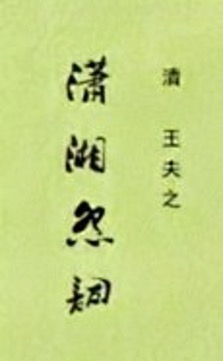 清 王夫之
瀟湘怨詞